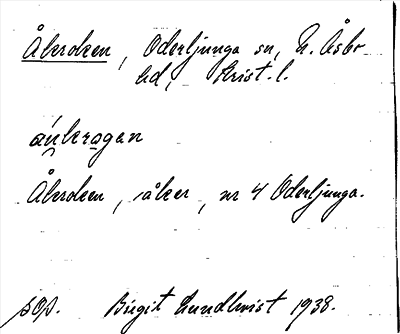 Åkroken, Oderljunga sn, N. Åsbo
hd, Krist. l.
áukrogan
Åkroken, åker, nr 4 Oderljunga.
sop. Birgit Lundkvist 1938.